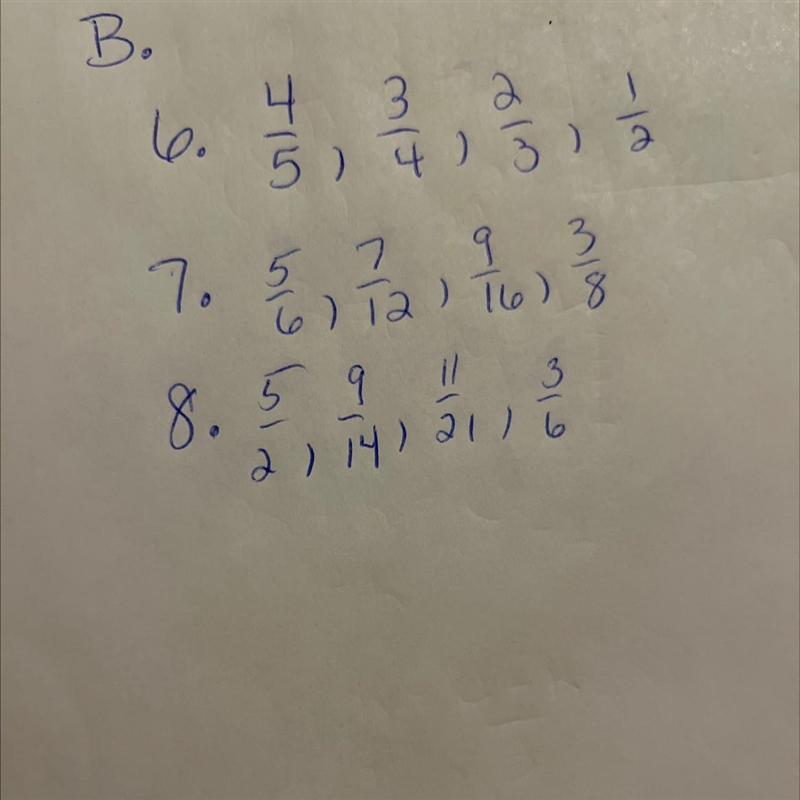 B.
6. 4/5, 3/4, 2/3, 1/2
7. 5/6, 7/12, 9/16, 3/8
8. 5/2, 9/14, 11/21, 3/6